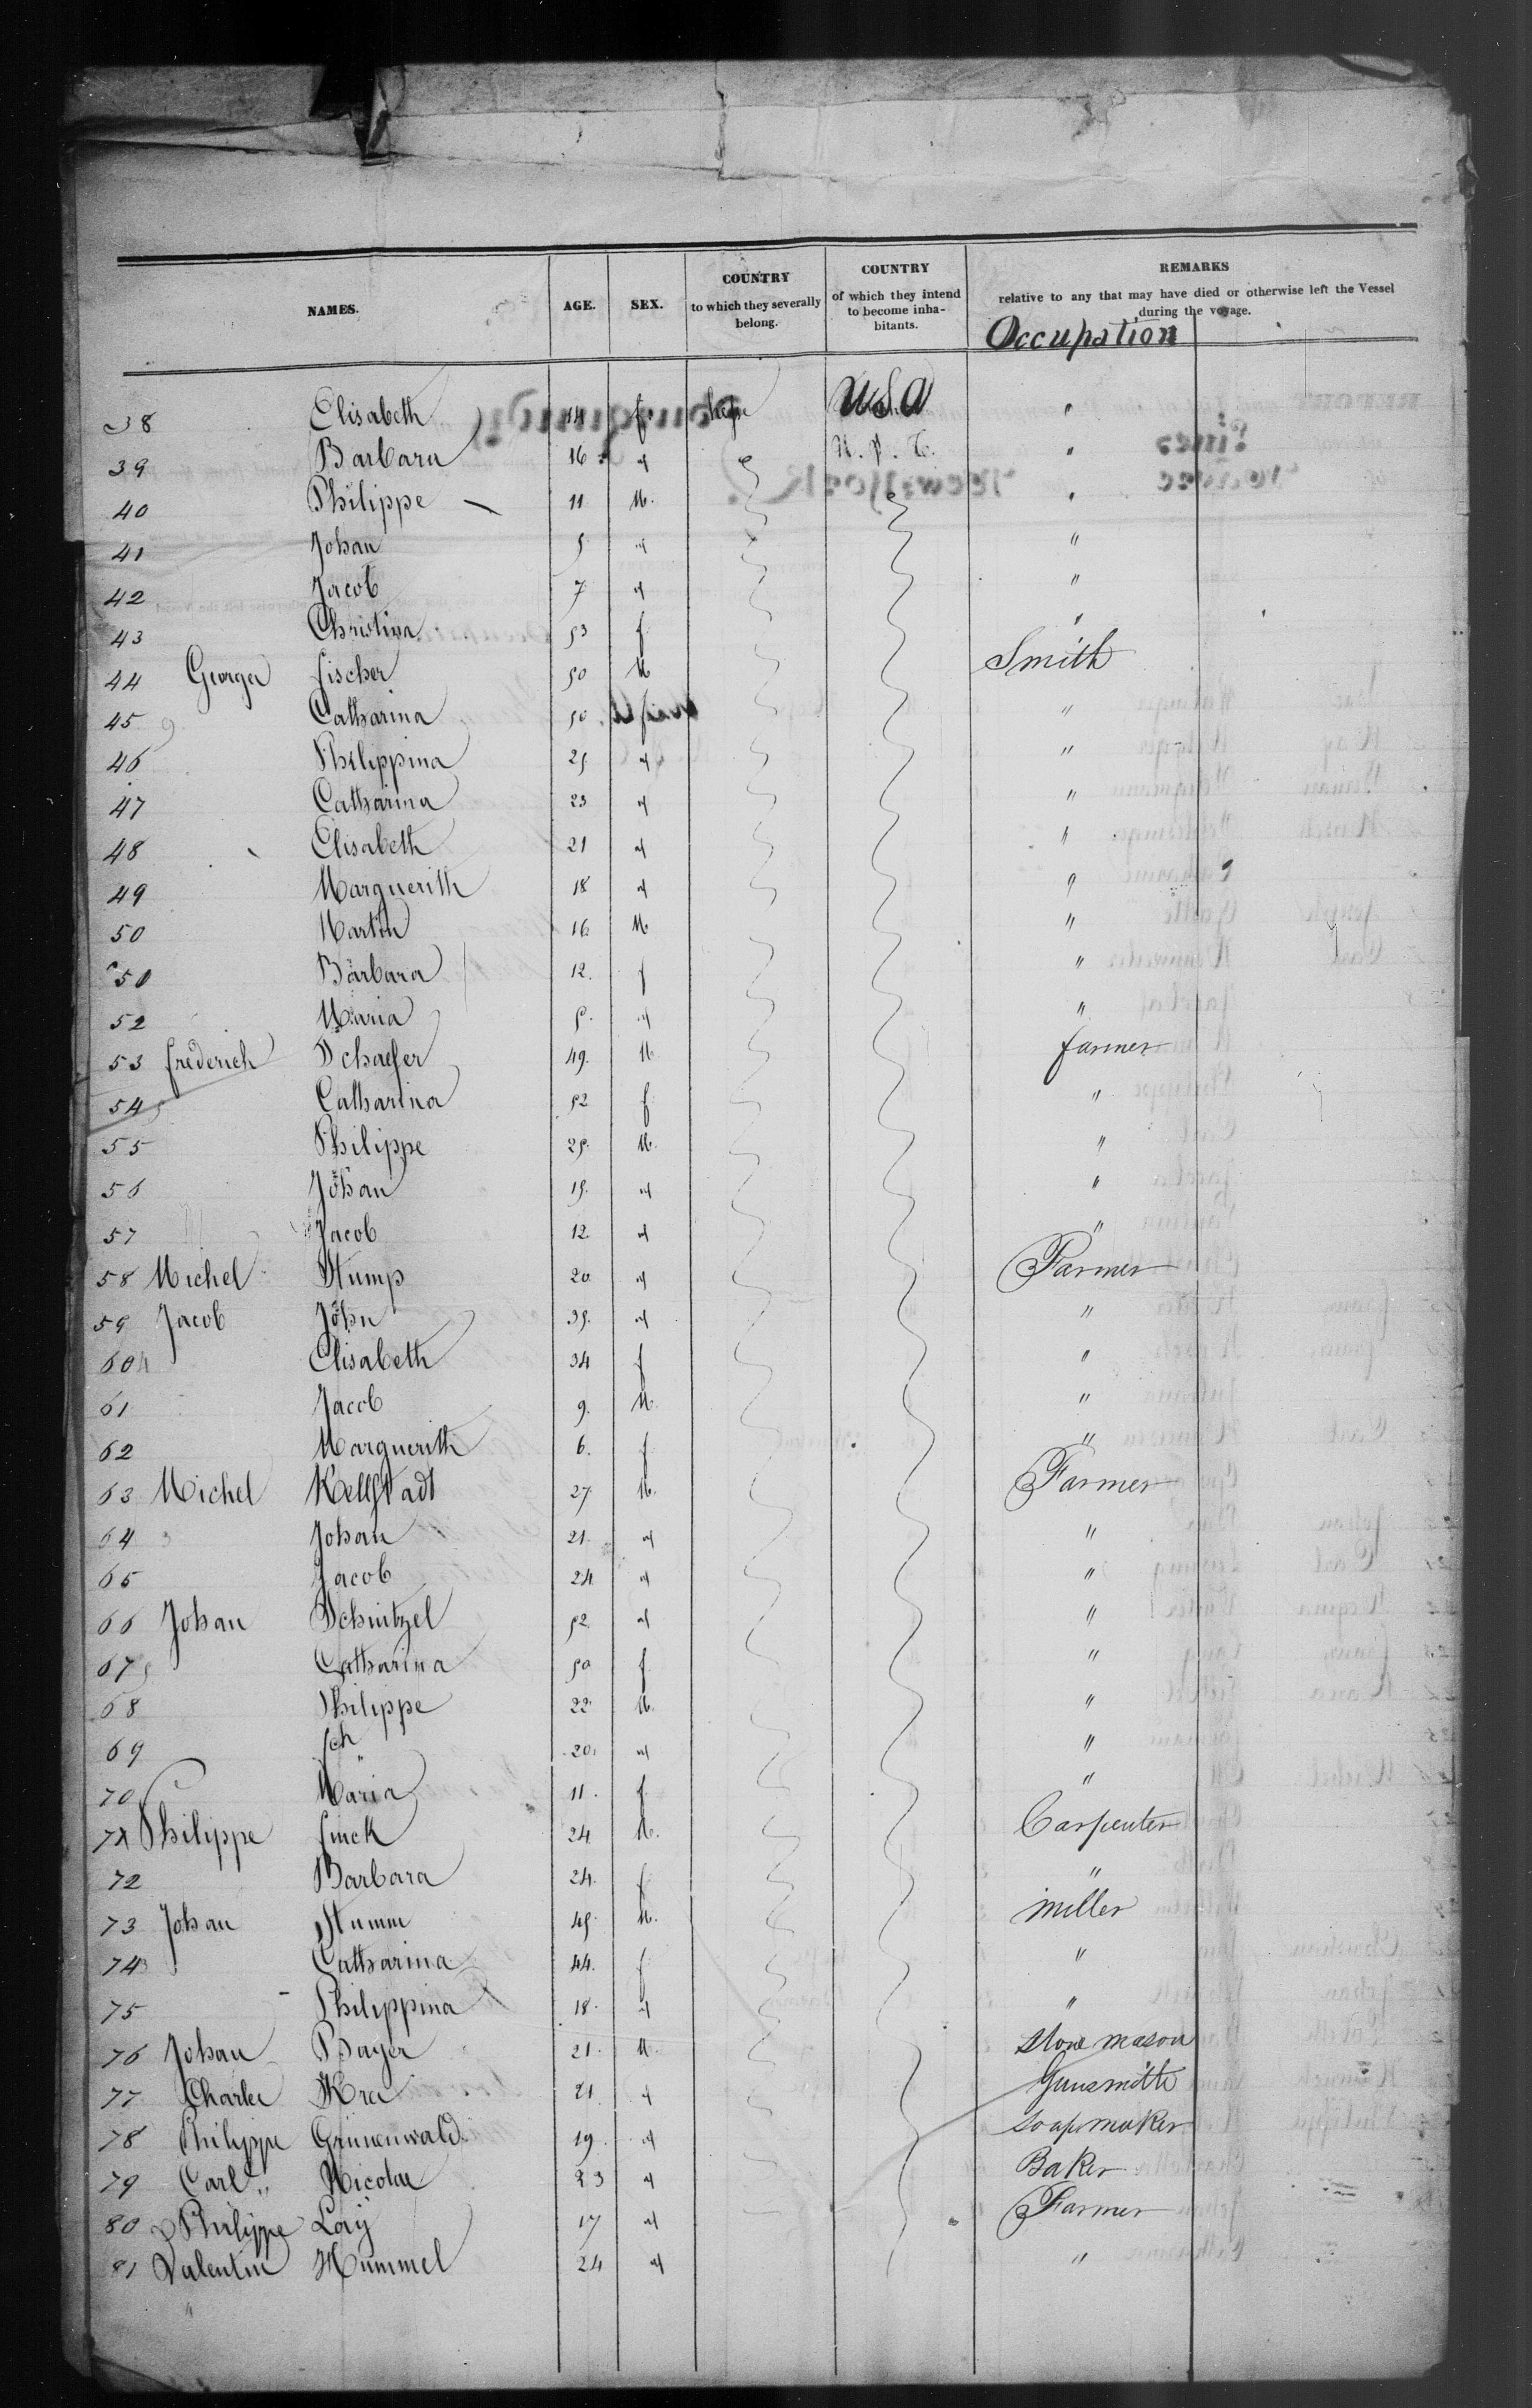 NAMES. AGE. SEX. COUNTRY to which they severally belong. COUNTRY of which they intend to become inhabitants. REMARKS relative to any that may have died or otherwise left the Vessel during the voyage.
Occupation
38 Elisabeth 14 f USA "
39 Barbara 16 " "
40 Philippe 11 M. "
41 Johan " "
42 Jacob 7 " "
43 Christina 53 f "
44 George fischer 50 M Smith
45 Catharina 50 "
46 Philippina 25 " "
47 Catharina 23 " "
48 Elisabeth 21 " "
49 Marguerith 18 " "
50 Martin 16 M "
50 Barbara 12. f "
52 Maria " "
53 frederich Schaefer 49. M. farmer
54 Catharina 52 f "
55 Philippe 25. M. "
56 Johan 15. " "
57 Jacob 12 " "
58 Michel Stump 20 " Farmer
59 Jacob John 35. " "
60 Elisabeth 34 f "
61 Jacob 9. M. "
62 Marguerith 6. f "
63 Michel Kellstadt 27 M. Farmer
64 Johan 21. " "
65 Jacob 24 " "
66 Johan Schnitzel 52 " "
67 Catharina 50 f "
68 Philippe 22 M. "
69 20. " "
70 Maria 11. f "
71 Philippe finck 24 M. Carpenter
72 Barbara 24. f "
73 Johan Stumm 45. M. miller
74 Catharina 44. f "
75 Philippina 18. " "
76 Johan Bayer 21. M. stone mason
77 Charles 21 " Gunsmith
78 Philippe Grünenwald 19. " soapmaker
79 Carl Nicolae 23 " Baker
80 Philippe Loij 17 " Farmer
81 Valentin Hummel 24 " "